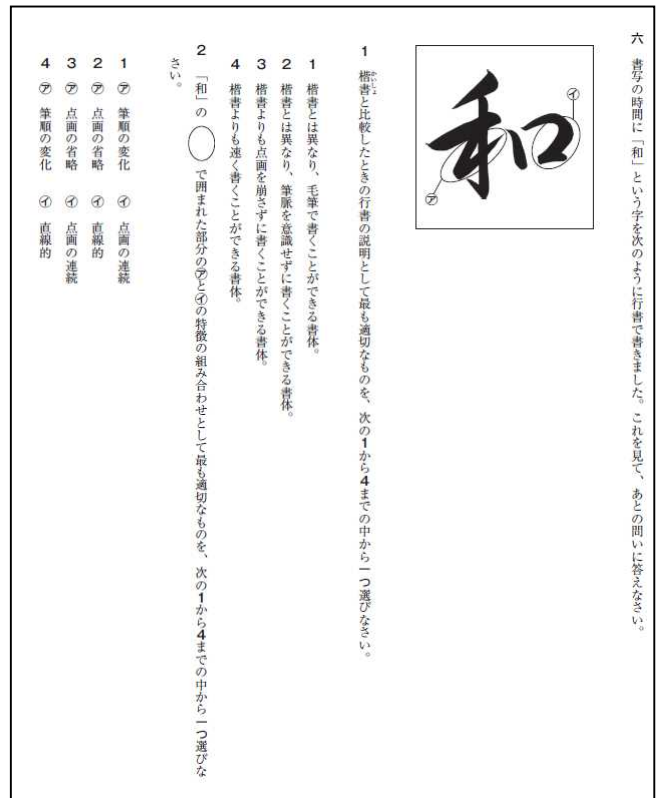 六　書写の時間に「和」という字を次のように行書で書きました。これを見て、あとの問いに答えなさい。
和
㋑
㋐
1　楷書と比較したときの行書の説明として最も適切なものを、次の1から4までの中から一つ選びなさい。
かいしょ
1　楷書とは異なり、毛筆で書くことができる書体。
2　楷書とは異なり、筆脈を意識せずに書くことができる書体。
3　楷書よりも点画を崩さずに書くことができる書体。
4　楷書よりも速く書くことができる書体。
2　「和」の　で囲まれた部分の㋐と㋑の特徴の組み合わせとして最も適切なものを、次の1から4までの中から一つ選びな
さい。
1　㋐　筆順の変化　㋑　点画の連続
2　㋐　点画の省略　㋑　直線的
3　㋐　点画の省略　㋑　点画の連続
4　㋐　筆順の変化　㋑　直線的